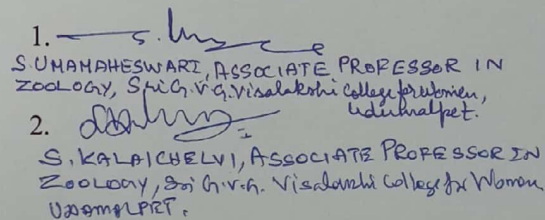 1. S. Um
S. UMAMAHESWARI, ASSOCIATE PROFESSOR IN
ZOOLOGY, Sri G.V.G. Visalakshi College for Women,
Udumalpet.
2.
S. KALAICHELVI, ASSOCIATE PROFESSOR IN
ZOOLOGY, Sri G.V.G. Visalakshi College for Women
UDAMALPET.